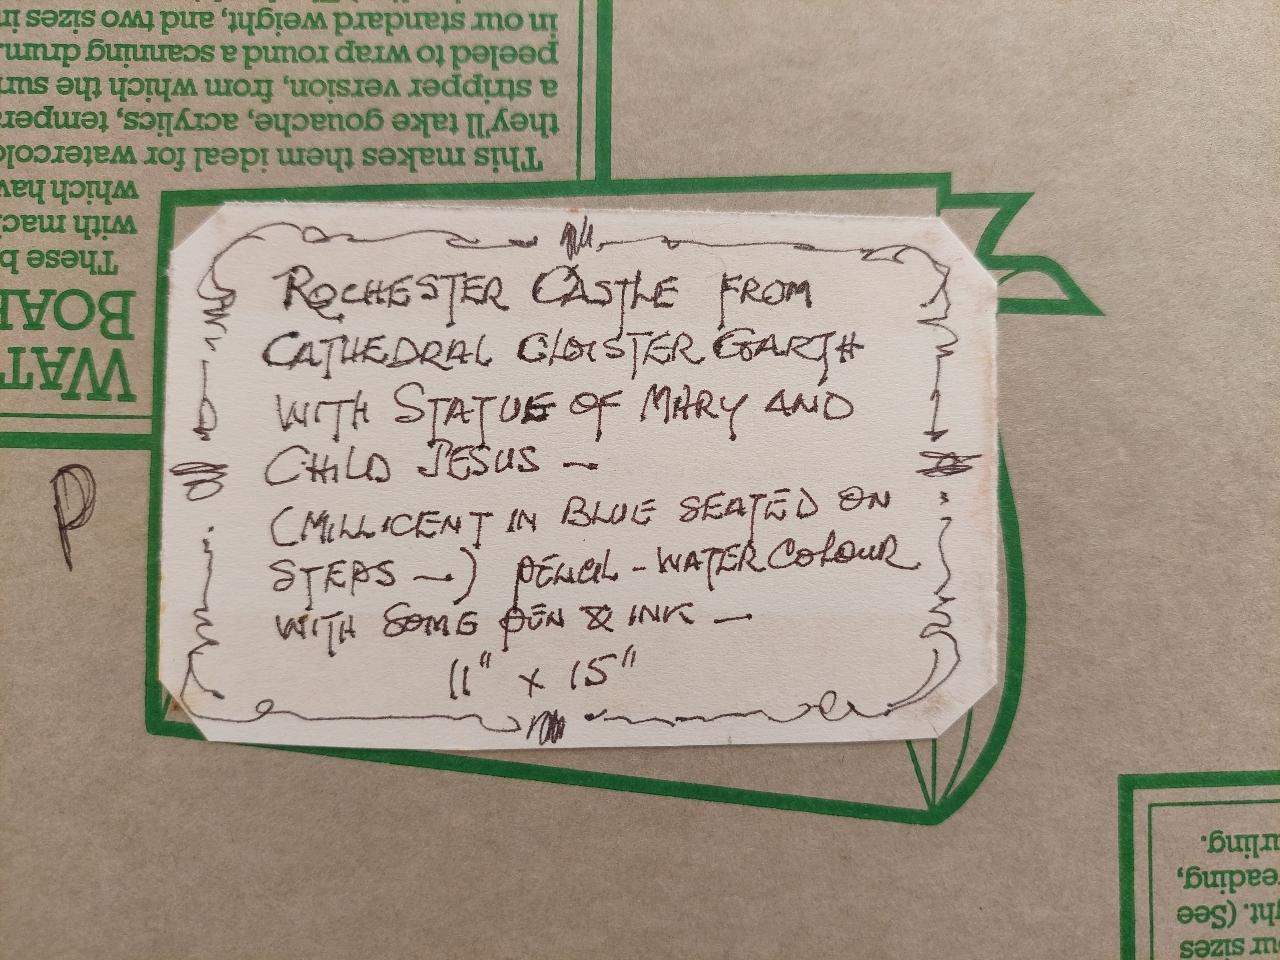 ROCHESTER CASTLE FROM
CATHEDRAL CLOISTER GARTH
WITH STATUE OF MARY AND
CHILD JESUS —
(MILLICENT IN BLUE SEATED ON
STEPS —) PENCIL - WATERCOLOUR
WITH SOME PEN & INK —
11" x 15"
P
WAT
BOAR
These b
with mac
which hav
This makes them ideal for watercolo
they'll take gouache, acrylics, tempera
a stripper version, from which the surf
peeled to wrap round a scanning drum.
in our standard weight, and two sizes in
our sizes
ght. (See
eading,
urling.